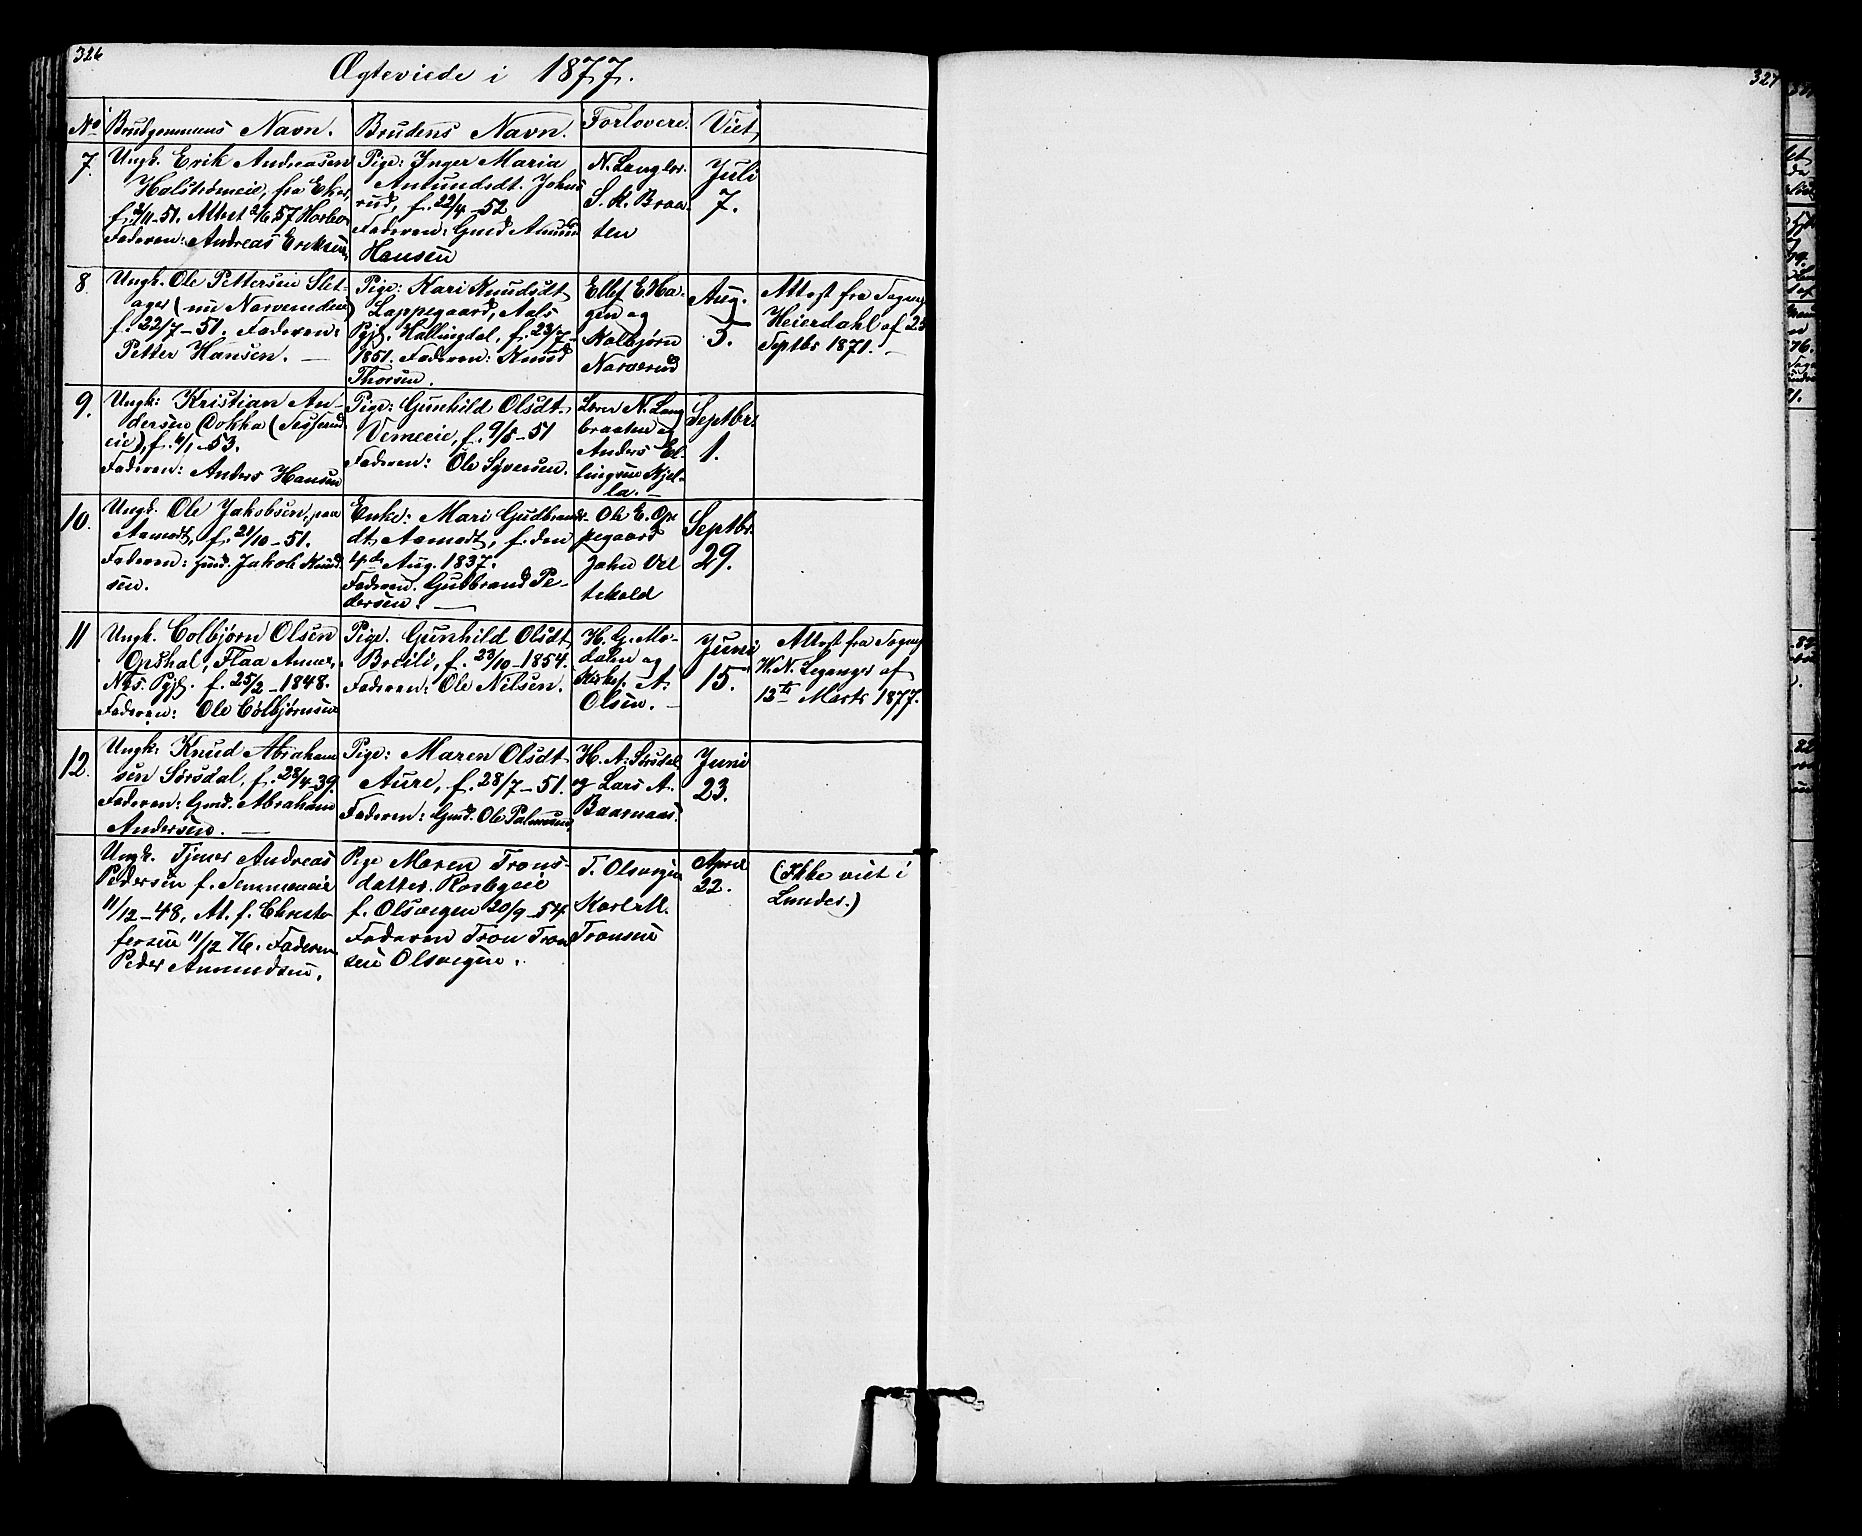 326
Ægteviede i 1877.
No Brudgommens Navn. Brudens Navn. Forlovere. Viet
7. Ungk. Erik Andreasen
Holstrømeie, fra Eker,
f. 3/11-51. Attest 2/6 57
Faderen: Andreas Eriksen
Pige: Inger Maria
Amundsdt. Johns
rud, f. 22/4-52
Faderen: Gmd Amund
Hansen
N. Langlr.
S. K. Braa
ten
Juli
7.
8 Ungk. Ole Pettersen Slet-
ager (nu Narvemdeie)
f. 22/7-51. Faderen:
Petter Hansen.
Pige: Kari Knudsdt
Lappegaard, Aals
Pgjl. Hallingdal, f. 23/7-
1851. Faderen: Knud
Thorsen.
Ellef E. Ha-
gen og
Kolbjørn
Narverud
Aug.
5.
Attest fra Sognepr.
Heierdahl af 25
Septbr 1871.
9. Ungk: Kristian An-
dersen Dokka (
eie), f. 6/1-53.
Faderen: Anders Hansen
Pige: Gunhild Olsdt.
Vemeeie, f. 9/5-51
Faderen: Ole Syversen.
N. Lang
braaten og
Anders El-
lingsen Kjel-
la.
Septbr.
1.
10. Ungk. Ole Jakobsen, paa
Aamodt, f. 21/10-51.
Faderen: Gmd. Jakob Knud
sen.
Enke: Mari Gudbrands-
dt. Aamodt, f. den
4de Aug. 1837.
Faderen. Gudbrand Pe-
dersen.
Ole E. Op
pegaard
John Vel
tekold
Septbr.
29.
11 Ungk. Colbjørn Olsen
Opshal, Flaa Annex,
Næs. Pgjl. f. 25/2-1848.
Faderen: Ole Colbjørnsen
Pige. Gunhild Olsdt
Breili, f. 23/10-1854.
Faderen: Ole Nilsen.
H. G. Mo-
dalen og
Kirkes. A.
Olsen.
Juni
15.
Attest fra Sognepr
W. N. Leganger af
13te Marts 1877.
12. Ungk: Knud Abraham
sen Sørsdal, f. 28/4-39.
Faderen: Gmd. Abraham
Andersen.
Pige: Maren Olsdt
Aure, f. 28/7-51.
Faderen: Gmd. Ole Palmesen
H. A. Strudal,
og Lars A.
Baarnaas.
Juni
23.
Ungk. Tjener Andreas
Pedersen f. Temmeneie
11/12-48, At. f. Christo
fersen 11/12 76. Faderen
Peder Amundsen.
Pige Maren Trons-
datter. Rosbyeie
f. Olsvegen 20/9-54
Faderen Tron Tron
sen Olsvegen.
T. Olsvegen
Karl M.
Tronsen
April
22.
(Ikke viet i
Lunder.)
327